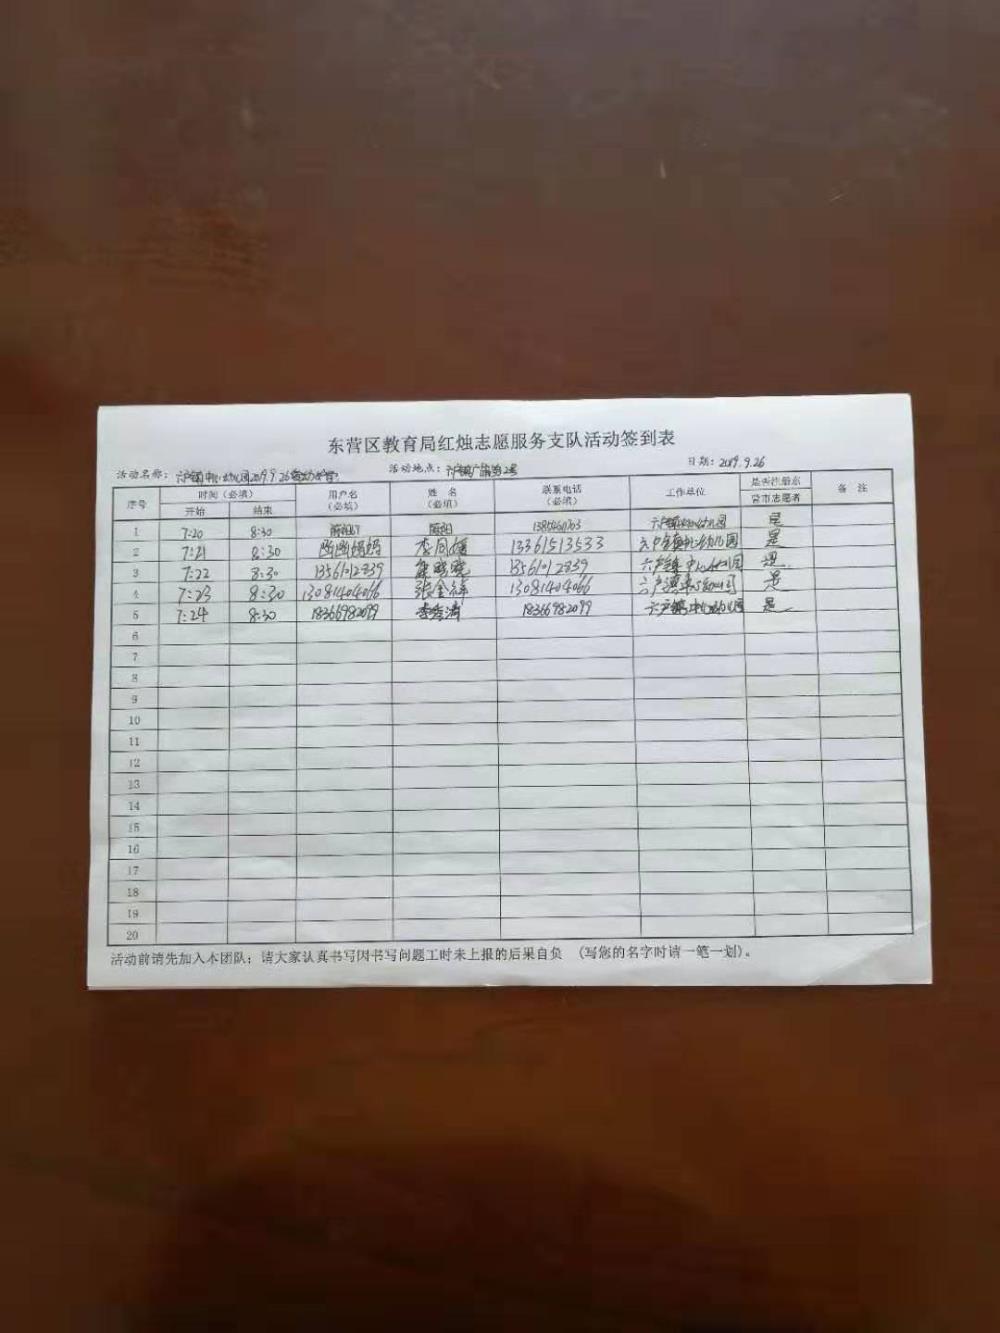 东营区教育局红烛志愿服务支队活动签到表
活动名称：六户镇中心幼儿园2019.9.26 活动地点：六户镇广 路 2号 日期：2019.9.26
序号 时间（必填） 用户名（必填） 姓 名（必填） 联系电话（必填） 工作单位 是否注册东营市志愿者 备 注
开始 结束
1 7:20 8:30 六户镇中心幼儿园 是
2 7:21 8:30 妈妈 李同 13361513533 六户镇中心幼儿园 是
3 7:22 8:30 13561012839 13561012839 六户镇中心幼儿园 是
4 7:23 8:30 13081404066 张金 13081404066 六户镇中心幼儿园 是
5 7:24 8:30 18366982099 李秀 18366982099 六户镇中心幼儿园 是
6
7
8
9
10
11
12
13
14
15
16
17
18
19
20
活动前请先加入本团队；请大家认真书写因书写问题工时未上报的后果自负 （写您的名字时请一笔一划）。